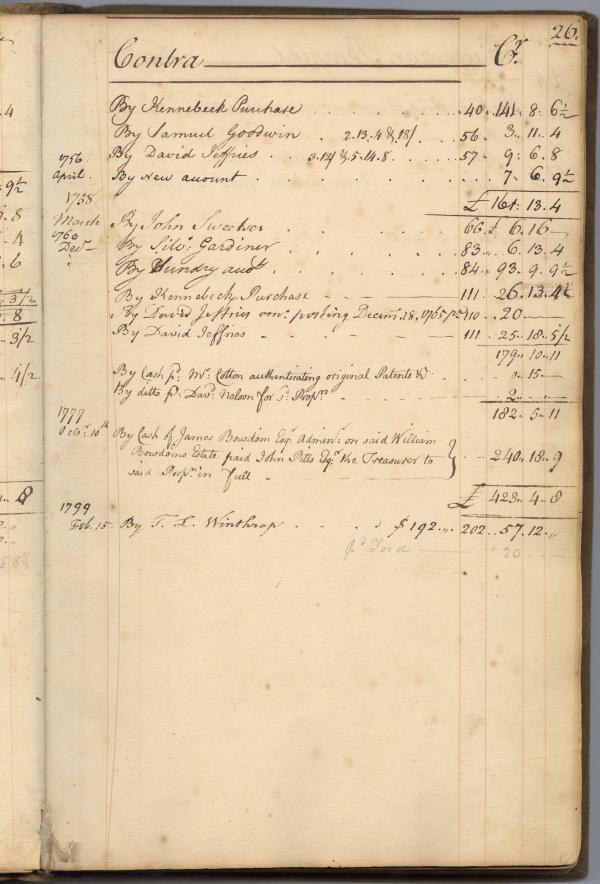 26.
Contra Cr.
By Kennebeck Purchase 40. 141. 8. 6½
By Samuel Goodwin 2.13.4 & 18/ 56. 3. 11. 4
1756. By David Jeffries 3.12/ & 5.14.8 57. 9. 6. 8
April. By New account 7. 6. 9½
£ 161. 13. 4
1758
March By John Sweetser 66. £ 6. 16 —
1760
Decr. By Silv. Gardiner 83. 6. 13. 4
By Sundry accts. 84. 93. 9. 9½
By Kennebeck Purchase 111. 26. 13. 4
By David Jeffries omd. posting Decem. 18, 1765 110. 20 —
By David Jeffries 111. 25. 18. 5/2
179. 10. 11
By Cash pd. Mr. Cotton authenticating original Patents &c. 15 —
By ditto pd. Davd. Nelson for sd. Proprs. 2
182. 5. 11
1777
Octor. 10th By Cash of James Bowdoin Esqr. Adminr. on said William
Bowdoins Estate paid John Pitts Esqr. the Treasurer to 240. 18. 9
said Proprs. in full
£ 423. 4. 8
1799
Feb. 15. By T. L. Winthrop $192. 202. 57. 12. "
20 —
4
9½
8
4
6
3/2
8
3/2
4/2
8